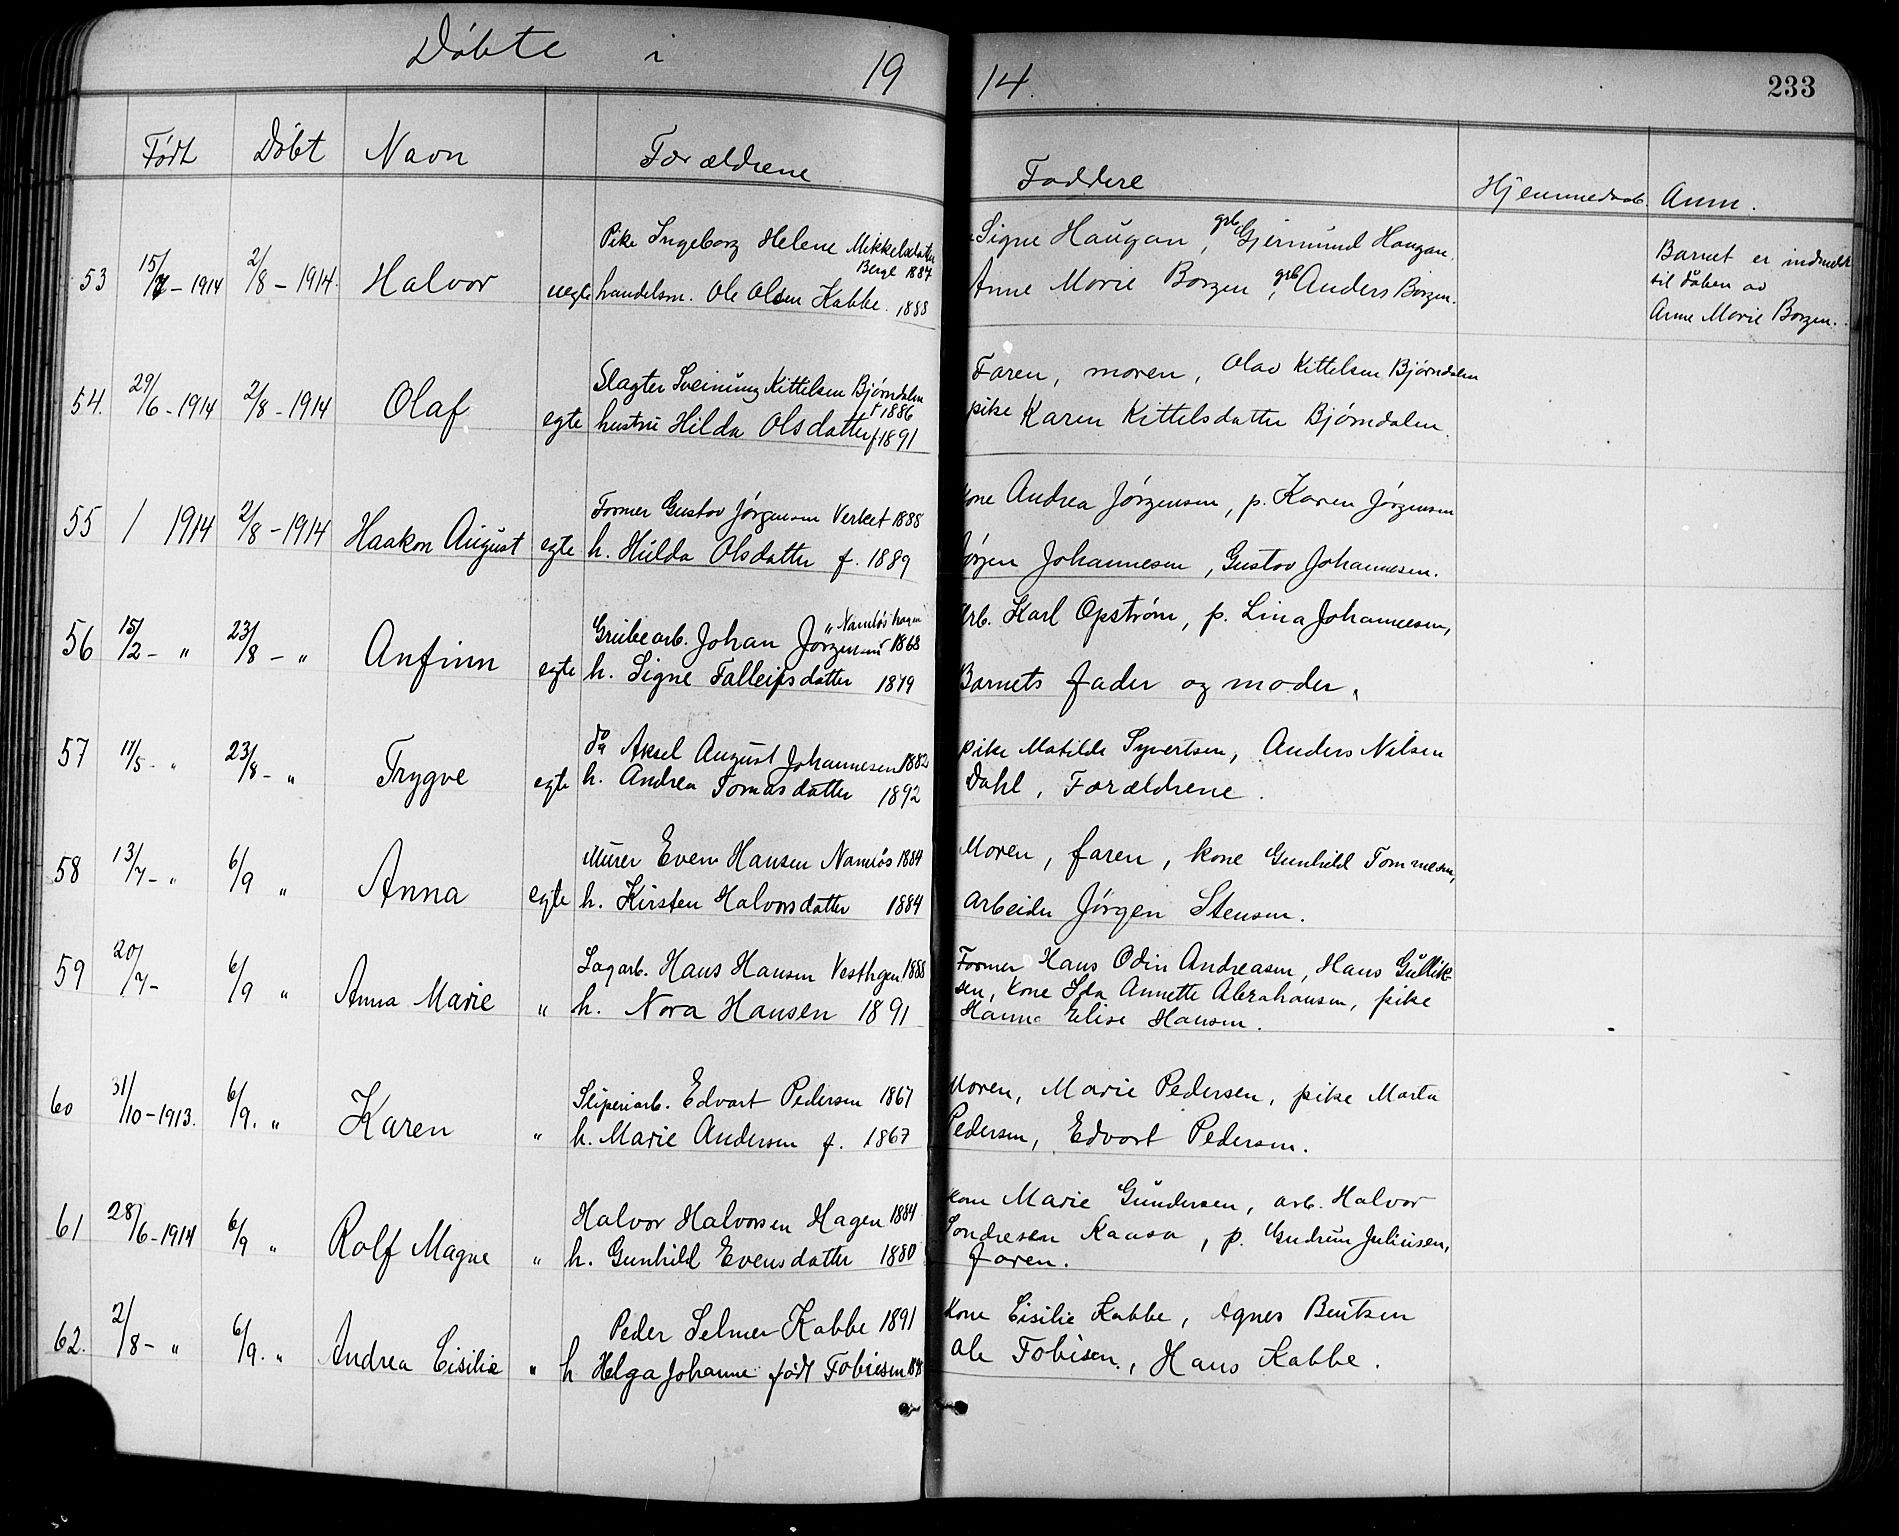 Døbte i 19 14. 233
Født Døbt Navn Forældrene Faddere Hjemmedaab Anm.
Pike Ingeborg Helene Mikkelsdatter
Berge 1887
53 15/7-1914 2/8-1914. Halvor uegte handelsm. Ole Olsen Kabbe. 1888
Signe Haugan, grb. Gjermund Haugan.
Anne Marie Borgen, grb. Anders Borgen.
Barnet er indmeldt
til dåben av
Anne Marie Borgen.
Slagter Sveinung Kittelsen Bjørndalen
f 1886
54. 29/6-1914 2/8-1914 Olaf egte hustru Hilda Olsdatter f 1891
Faren, moren, Olav Kittelsen Bjørndalen
pike Karen Kittelsdatter Bjørndalen.
Former Gustav Jørgensen Verket 1888
55 / 1914 2/8-1914 Haakon August egte h. Hilda Olsdatter f. 1889
kone Andrea Jørgensen, p. Karen Jørgensen
Jørgen Johannesen, Gustav Johannesen.
Grubearb. Johan Jørgensen 1868
56 15/2- " 23/8- " Anfinn egte h. Signe Talleifsdatter 1879
arb. Karl Opstrøm, p. Lina Johannesen,
Barnets fader og moder.
do Aksel August Johannesen 1882
57 17/5- " 23/8- " Trygve egte h. Andrea Tomasdatter 1892
pike Matilde Syvertsen, Anders Nilsen
Dahl, Forældrene.
Murer Even Hansen Namløs 1884
58 13/7- " 6/9 " Anna egte h. Kirsten Halvorsdatter 1884
Moren, faren, kone Gunhild Tommesen,
arbeider Jørgen Stensen.
Sagarb. Hans Hansen Vesthgen 1888
59 20/7- 6/9 " Anna Marie " h. Nora Hansen 1891
Former Hans Odin Andreasen, Hans Gullik-
sen, kone Ida Annette Abrahamsen, pike
Hanna Elise Hansen.
Sliperiarb. Edvart Pedersen 1867
60 31/10-1913. 6/9. " Karen " h. Marie Andersen f. 1867
Moren, Marie Pedersen, pike Marta
Pedersen, Edvart Pedersen.
Halvor Halvorsen Hagen 1884
61 28/6-1914 6/9 " Rolf Magne " h. Gunhild Evensdatter 1880
kone Marie Gundersen, arb. Halvor
Sondresen Kaasa, p. Gudrun Juliusen,
faren.
Peder Selmer Kabbe 1891
62. 2/8- " 6/9. " Andrea Cisilie " h Helga Johanne født Tobiesen
kone Cisilie Kabbe, Agnes Bentsen
Ole Tobisen, Hans Kabbe.